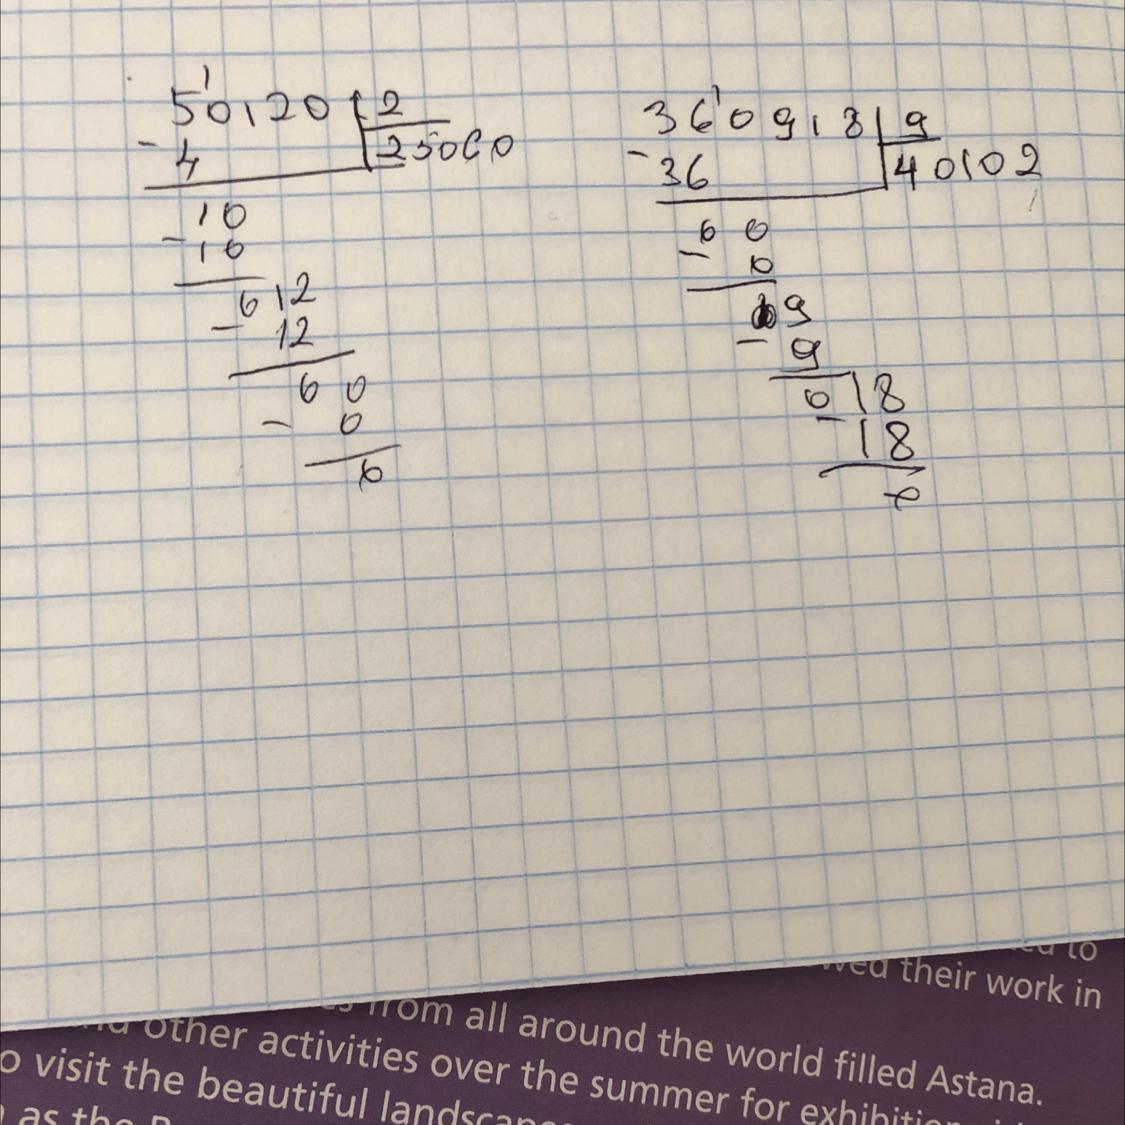 50120 2
- 4 25060
10
- 10
012
- 12
00
- 0
0
360918 9
- 36 40102
00
- 0
09
- 9
018
- 18
0
to
wed their work in
from all around the world filled Astana.
other activities over the summer for
o visit the beautiful
as the